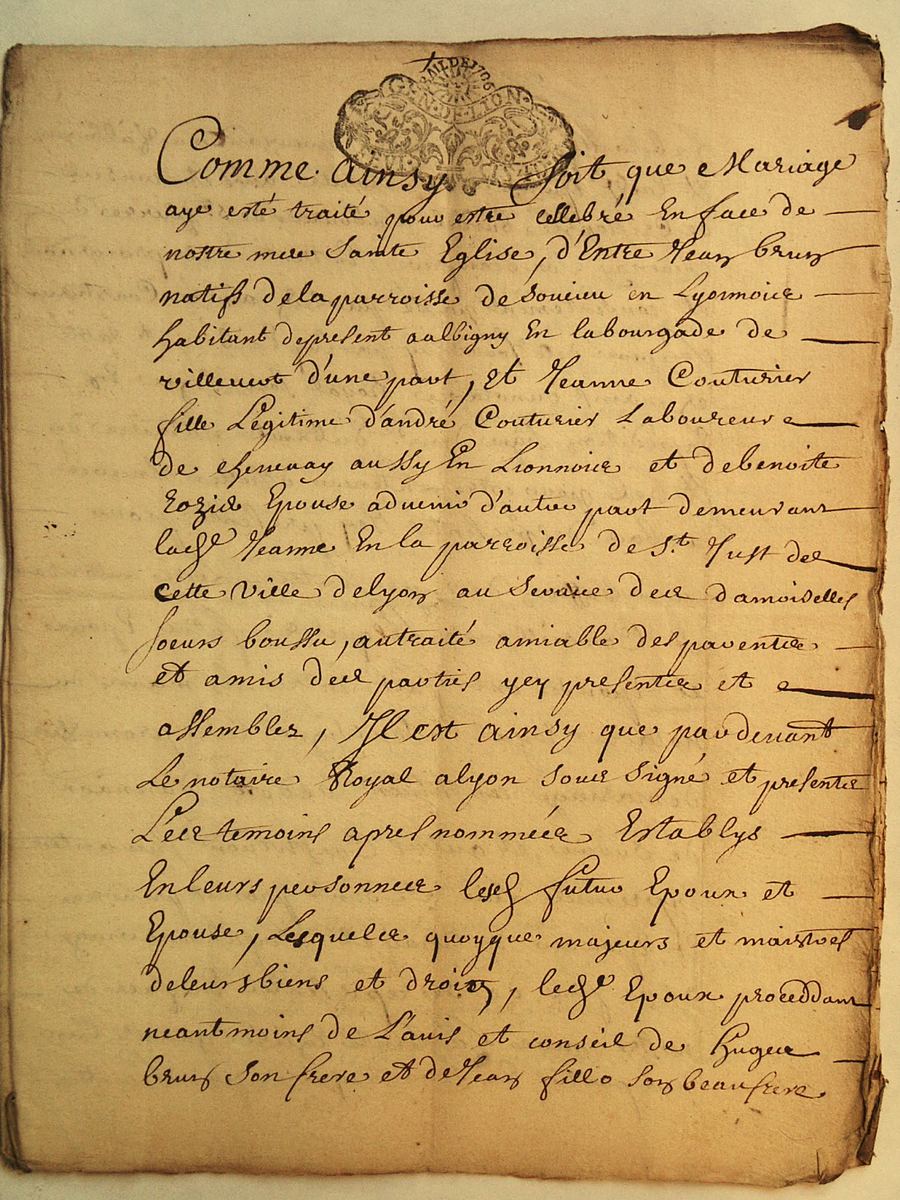 BAIL DE 1706
GEN·DE·LION
Comme Ainsy Soit que Mariage
aye esté traité pour estre cellebré En face de
nostre mere Sainte Eglise, d'Entre Jean brun
natifs de la parroisse de Soucieu en Lyonnois
habitant depresent a albigny En la bourgade de
villevert d'une part, Et Jeanne Couturier
fille Legitime d'andré Couturier Laboureur
de Chenevay aussy En Lionnois et de benoite
Rozie Epouse advenir d'autre part demeurant
lade Jeanne En la parroisse de St. Just de
cette Ville de lyon au Service des damoiselles
soeurs boussu, au traité amiable des parentes
et amis des parties ycy presentes et
assemblez, Il est Ainsy que pardevant
Le notaire Royal a lyon sous signé et presentes
Les temoins apres nommées Establys
En leurs personnes lesd futur Epoux et
Epouse, Lesqueles quoyque majeurs et maistres
de leurs biens et droits, led Epoux proceddant
neantmoins de L'avis et conseil de hugue
brun son frere et de Jean fillo son beaufrere